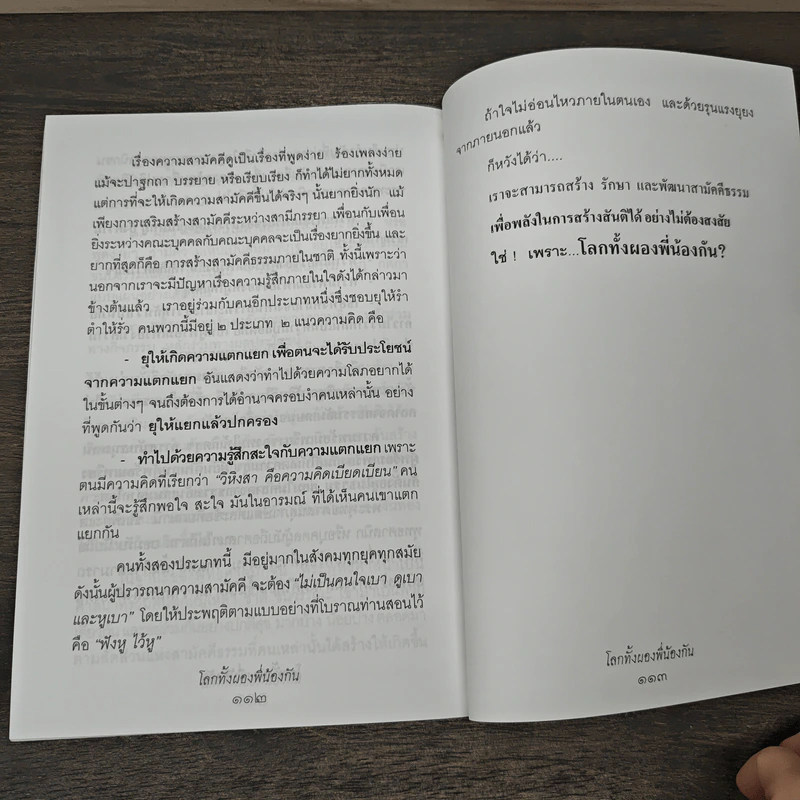 เรื่องความสามัคคีดูเป็นเรื่องที่พูดง่าย ร้องเพลงง่าย
แม้จะปาฐกถา บรรยาย หรือเรียบเรียง ก็ทำได้ไม่ยากทั้งหมด
แต่การที่จะให้เกิดความสามัคคีขึ้นได้จริงๆ นั้นยากยิ่งนัก แม้
เพียงการเสริมสร้างสามัคคีระหว่างสามีภรรยา เพื่อนกับเพื่อน
ยิ่งระหว่างคณะบุคคลกับคณะบุคคลจะเป็นเรื่องยากยิ่งขึ้น และ
ยากที่สุดก็คือ การสร้างสามัคคีธรรมภายในชาติ ทั้งนี้เพราะว่า
นอกจากเราจะมีปัญหาเรื่องความรู้สึกภายในใจดังได้กล่าวมา
ข้างต้นแล้ว เราอยู่ร่วมกับคนอีกประเภทหนึ่งซึ่งชอบยุให้รำ
ตำให้รั่ว คนพวกนี้มีอยู่ ๒ ประเภท ๒ แนวความคิด คือ
- ยุให้เกิดความแตกแยก เพื่อตนจะได้รับประโยชน์
จากความแตกแยก อันแสดงว่าทำไปด้วยความโลภอยากได้
ในขั้นต่างๆ จนถึงต้องการได้อำนาจครอบงำคนเหล่านั้น อย่าง
ที่พูดกันว่า ยุให้แยกแล้วปกครอง
- ทำไปด้วยความรู้สึกสะใจกับความแตกแยก เพราะ
ตนมีความคิดที่เรียกว่า "วิหิงสา คือความคิดเบียดเบียน" คน
เหล่านี้จะรู้สึกพอใจ สะใจ มันในอารมณ์ ที่ได้เห็นคนเขาแตก
แยกกัน
คนทั้งสองประเภทนี้ มีอยู่มากในสังคมทุกยุคทุกสมัย
ดังนั้นผู้ปรารถนาความสามัคคี จะต้อง "ไม่เป็นคนใจเบา ดูเบา
และหูเบา" โดยให้ประพฤติตามแบบอย่างที่โบราณท่านสอนไว้
คือ "ฟังหู ไว้หู"
โลกทั้งผองพี่น้องกัน
๑๑๒
ถ้าใจไม่อ่อนไหวภายในตนเอง และด้วยรุนแรงยุยง
จากภายนอกแล้ว
ก็หวังได้ว่า....
เราจะสามารถสร้าง รักษา และพัฒนาสามัคคีธรรม
เพื่อพลังในการสร้างสันติได้ อย่างไม่ต้องสงสัย
ใช่ ! เพราะ...โลกทั้งผองพี่น้องกัน?
โลกทั้งผองพี่น้องกัน
๑๑๓